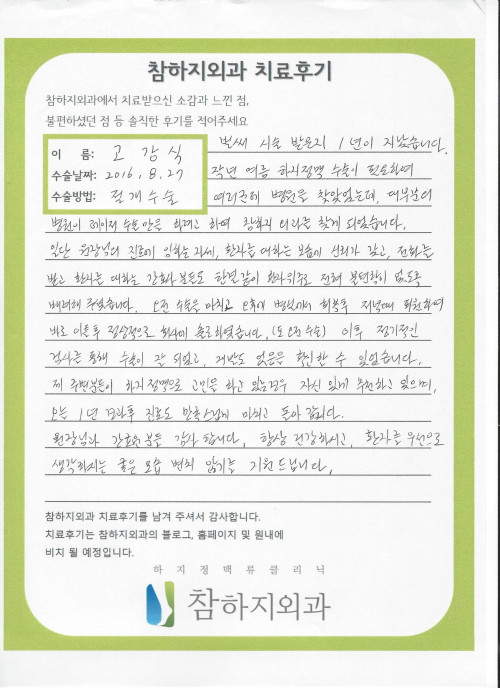 참하지외과 치료후기
참하지외과에서 치료받으신 소감과 느낀 점,
불편하셨던 점 등 솔직한 후기를 적어주세요
이 름: 고 강 식
수술날짜: 2016. 8. 27
수술방법: 절개수술
벌써 시술 받은지 1년이 지났습니다.
작년 여름 하지정맥 수술이 필요하여
여러군데 병원을 찾았었는데, 대부분의
병원이 레이저 수술만을 하려고 하여 참하지외과를 찾게 되었습니다.
일단 원장님의 진료에 임하는 자세, 환자를 대하는 모습에 신뢰가 갔고, 전화를
받고 환자를 대하는 간호사분들도 한결같이 환자위주로 전혀 불편함이 없도록
배려해 주셨습니다. 오전 수술을 마치고 오후에 병원에서 회복후 저녁때 퇴원하여
바로 이튿후 정상적으로 회사에 출근하였습니다. (토 오전 수술) 이후 정기적인
검사를 통해 수술이 잘 되었고, 재발도 없음을 확인할 수 있었습니다.
제 주변분들이 하지정맥으로 고민을 하고 있는경우 자신 있게 추천하고 있으며,
오늘 1년 경과후 진료도 만족스럽게 마치고 돌아 갑니다.
원장님과 간호원분들 감사합니다. 항상 건강하시고, 환자를 우선으로
생각하시는 좋은 모습 변치 않기를 기원드립니다.
참하지외과 치료후기를 남겨 주셔서 감사합니다.
치료후기는 참하지외과의 블로그, 홈페이지 및 원내에
비치 될 예정입니다.
하지정맥류클리닉
참하지외과